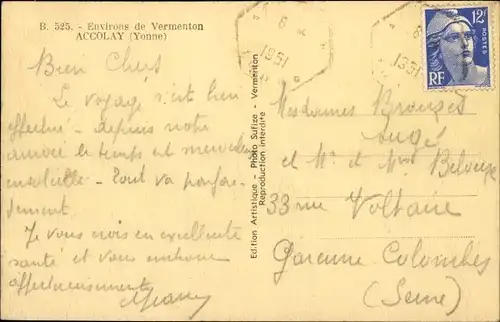 B. 525. - Environs de Vermenton
ACCOLAY (Yonne)
Bien Chers
Le voyage s'est bien
effectué - depuis notre
arrivée le temps est
- Tout va
Je vous crois en excellente
santé et vous embrasse
affectueusement
Edition Artistique - Photo Sufize - Vermenton
Reproduction interdite
6
1951
6
1951
12F
POSTES
RF
Mesdames
Augé
et Mr et Mme
33 rue Voltaire
Garenne Colombes
(Seine)